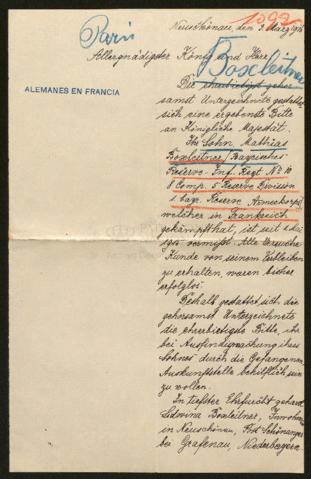 Neuschönau, den 3. März 1916
1092
Paris
Allergnädigster König und Herr
Boxleitner
ALEMANES EN FRANCIA
Die ehrerbietigst gehor-
samst Unterzeichnete gestattet
sich eine ergebenste Bitte
an Königliche Majestät.
Ihr Sohn Mathias
Boxleitner, Bayerisches
Reserve-Inf. Regt No 10
8 Comp. 5 Reserve Division
1 bayr. Reserve Armeekorps
welcher in Frankreich
gekämpft hat, ist seit
vermißt. Alle Versuche
Kunde von seinem Verbleiben
zu erhalten, waren bisher
erfolglos.
Deshalb gestattet sich die
gehorsamst Unterzeichnete
die ehrerbietigste Bitte, ihr
bei Ausfindigmachung ihres
Sohnes durch die Gefangenen
Auskunftstelle behilflich sein
zu wollen.
In tiefster Ehrfurcht gehorst.
Boxleitner, Inwohnerin
in Neuschönau, Post Schönanger
bei Grafenau, Niederbayern.